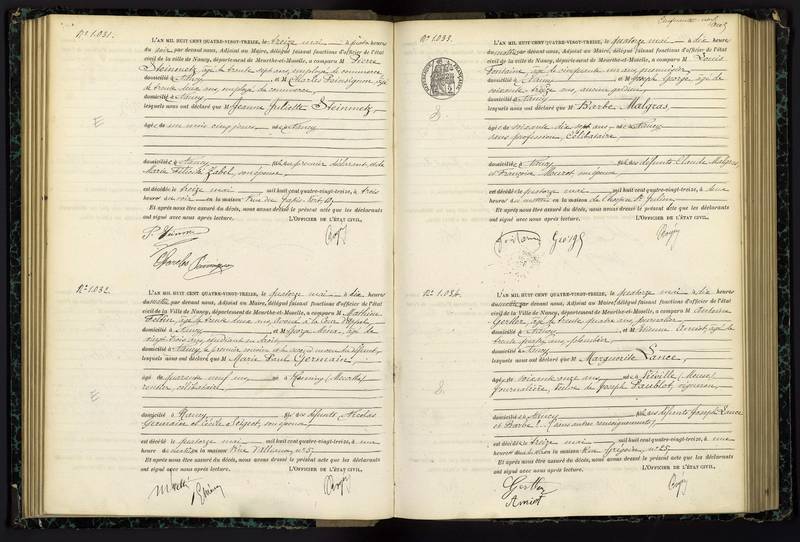 No 1.031.
L'AN MIL HUIT CENT QUATRE-VINGT-TREIZE, le treize mai à quatre heures
du soir, par devant nous, Adjoint au Maire, délégué faisant fonctions d'officier de l'état
civil de la ville de Nancy, département de Meurthe-et-Moselle, a comparu M Pierre
Steinmetz, âgé de trente sept ans, employé de commerce,
domicilié à Nancy et M Charles
de trente deux ans, employé de commerce,
domicilié à Nancy
lesquels nous ont déclaré que M Jeanne Juliette Steinmetz,
E
âgée de un mois cinq jours, née à Nancy
domiciliée à Nancy fille du premier déclarant et de
Marie Félicité Zabel, son épouse,
est décédée le treize mai mil huit cent quatre-vingt-treize, à trois
heures du soir en la maison rue du Tapis Vert,
Et après nous être assuré du décès, nous avons dressé le présent acte que les déclarants
ont signé avec nous après lecture. L'OFFICIER DE L'ÉTAT CIVIL,
Charles
No 1.032.
L'AN MIL HUIT CENT QUATRE-VINGT-TREIZE, le quatorze mai à dix heures
du matin par devant nous, Adjoint au Maire, délégué faisant fonctions d'officier de l'état
civil de la Ville de Nancy, département de Meurthe-et-Moselle, a comparu M Mathieu
âgé de trente deux ans, avoué à la Cour d'appel
domicilié à Nancy et M George âgé de
vingt trois ans, étudiant en droit,
domicilié à Nancy, le premier cousin et le second neveu du défunt,
lesquels nous ont déclaré que M Marie Paul Germain,
E
âgé de quarante neuf ans né à (Meurthe)
rentier, célibataire,
domicilié à Nancy fils des défunts Nicolas
Germain et Cécile son épouse,
est décédé le quatorze mai mil huit cent quatre-vingt-treize, à une
heure du matin en la maison Rue no 5
Et après nous être assuré du décès, nous avons dressé le présent acte que les déclarants
ont signé avec nous après lecture. L'OFFICIER DE L'ÉTAT CIVIL,
Cinquante neuf
No 1033.
L'AN MIL HUIT CENT QUATRE-VINGT-TREIZE, le quatorze mai à dix heures
du matin par devant nous, Adjoint au Maire, délégué faisant fonctions d'officier de l'état
civil de la ville de Nancy, département de Meurthe-et-Moselle, a comparu M Louis
Fontaine, âgé de cinquante un ans, menuisier,
domicilié à Nancy et M Joseph George, âgé de
soixante treize ans, ancien gardien
domicilié à Nancy
lesquels nous ont déclaré que M Barbe Malgras,
âgée de soixante dix sept ans, née à Nancy
sans profession, célibataire,
domiciliée à Nancy fille des défunts Claude Malgras
et Françoise Mourot son épouse,
est décédée le quatorze mai mil huit cent quatre-vingt-treize, à une
heure du matin en la maison de l'hospice St Julien,
Et après nous être assuré du décès, nous avons dressé le présent acte que les déclarants
ont signé avec nous après lecture. L'OFFICIER DE L'ÉTAT CIVIL,
Fontaine George
No 1.034.
L'AN MIL HUIT CENT QUATRE-VINGT-TREIZE, le quatorze mai à dix heures
du matin par devant nous, Adjoint au Maire, délégué faisant fonctions d'officier de l'état
civil de la Ville de Nancy, département de Meurthe-et-Moselle, a comparu M Antoine
Gerther, âgé de trente quatre ans, journalier
domicilié à Nancy et M Etienne Amiot, âgé de
trente quatre ans, plombier
domicilié à Nancy
lesquels nous ont déclaré que M Marguerite Lance,
âgée de soixante onze ans née à (Meuse)
journalière, veuve de Joseph vigneron,
domiciliée à Nancy fille des défunts Joseph Lance
et Barbe (sans autres renseignements)
est décédée le treize mai mil huit cent quatre-vingt-treize, à une
heure du soir en la maison Rue Grégoire, no 25
Et après nous être assuré du décès, nous avons dressé le présent acte que les déclarants
ont signé avec nous après lecture. L'OFFICIER DE L'ÉTAT CIVIL,
Gerther
Amiot